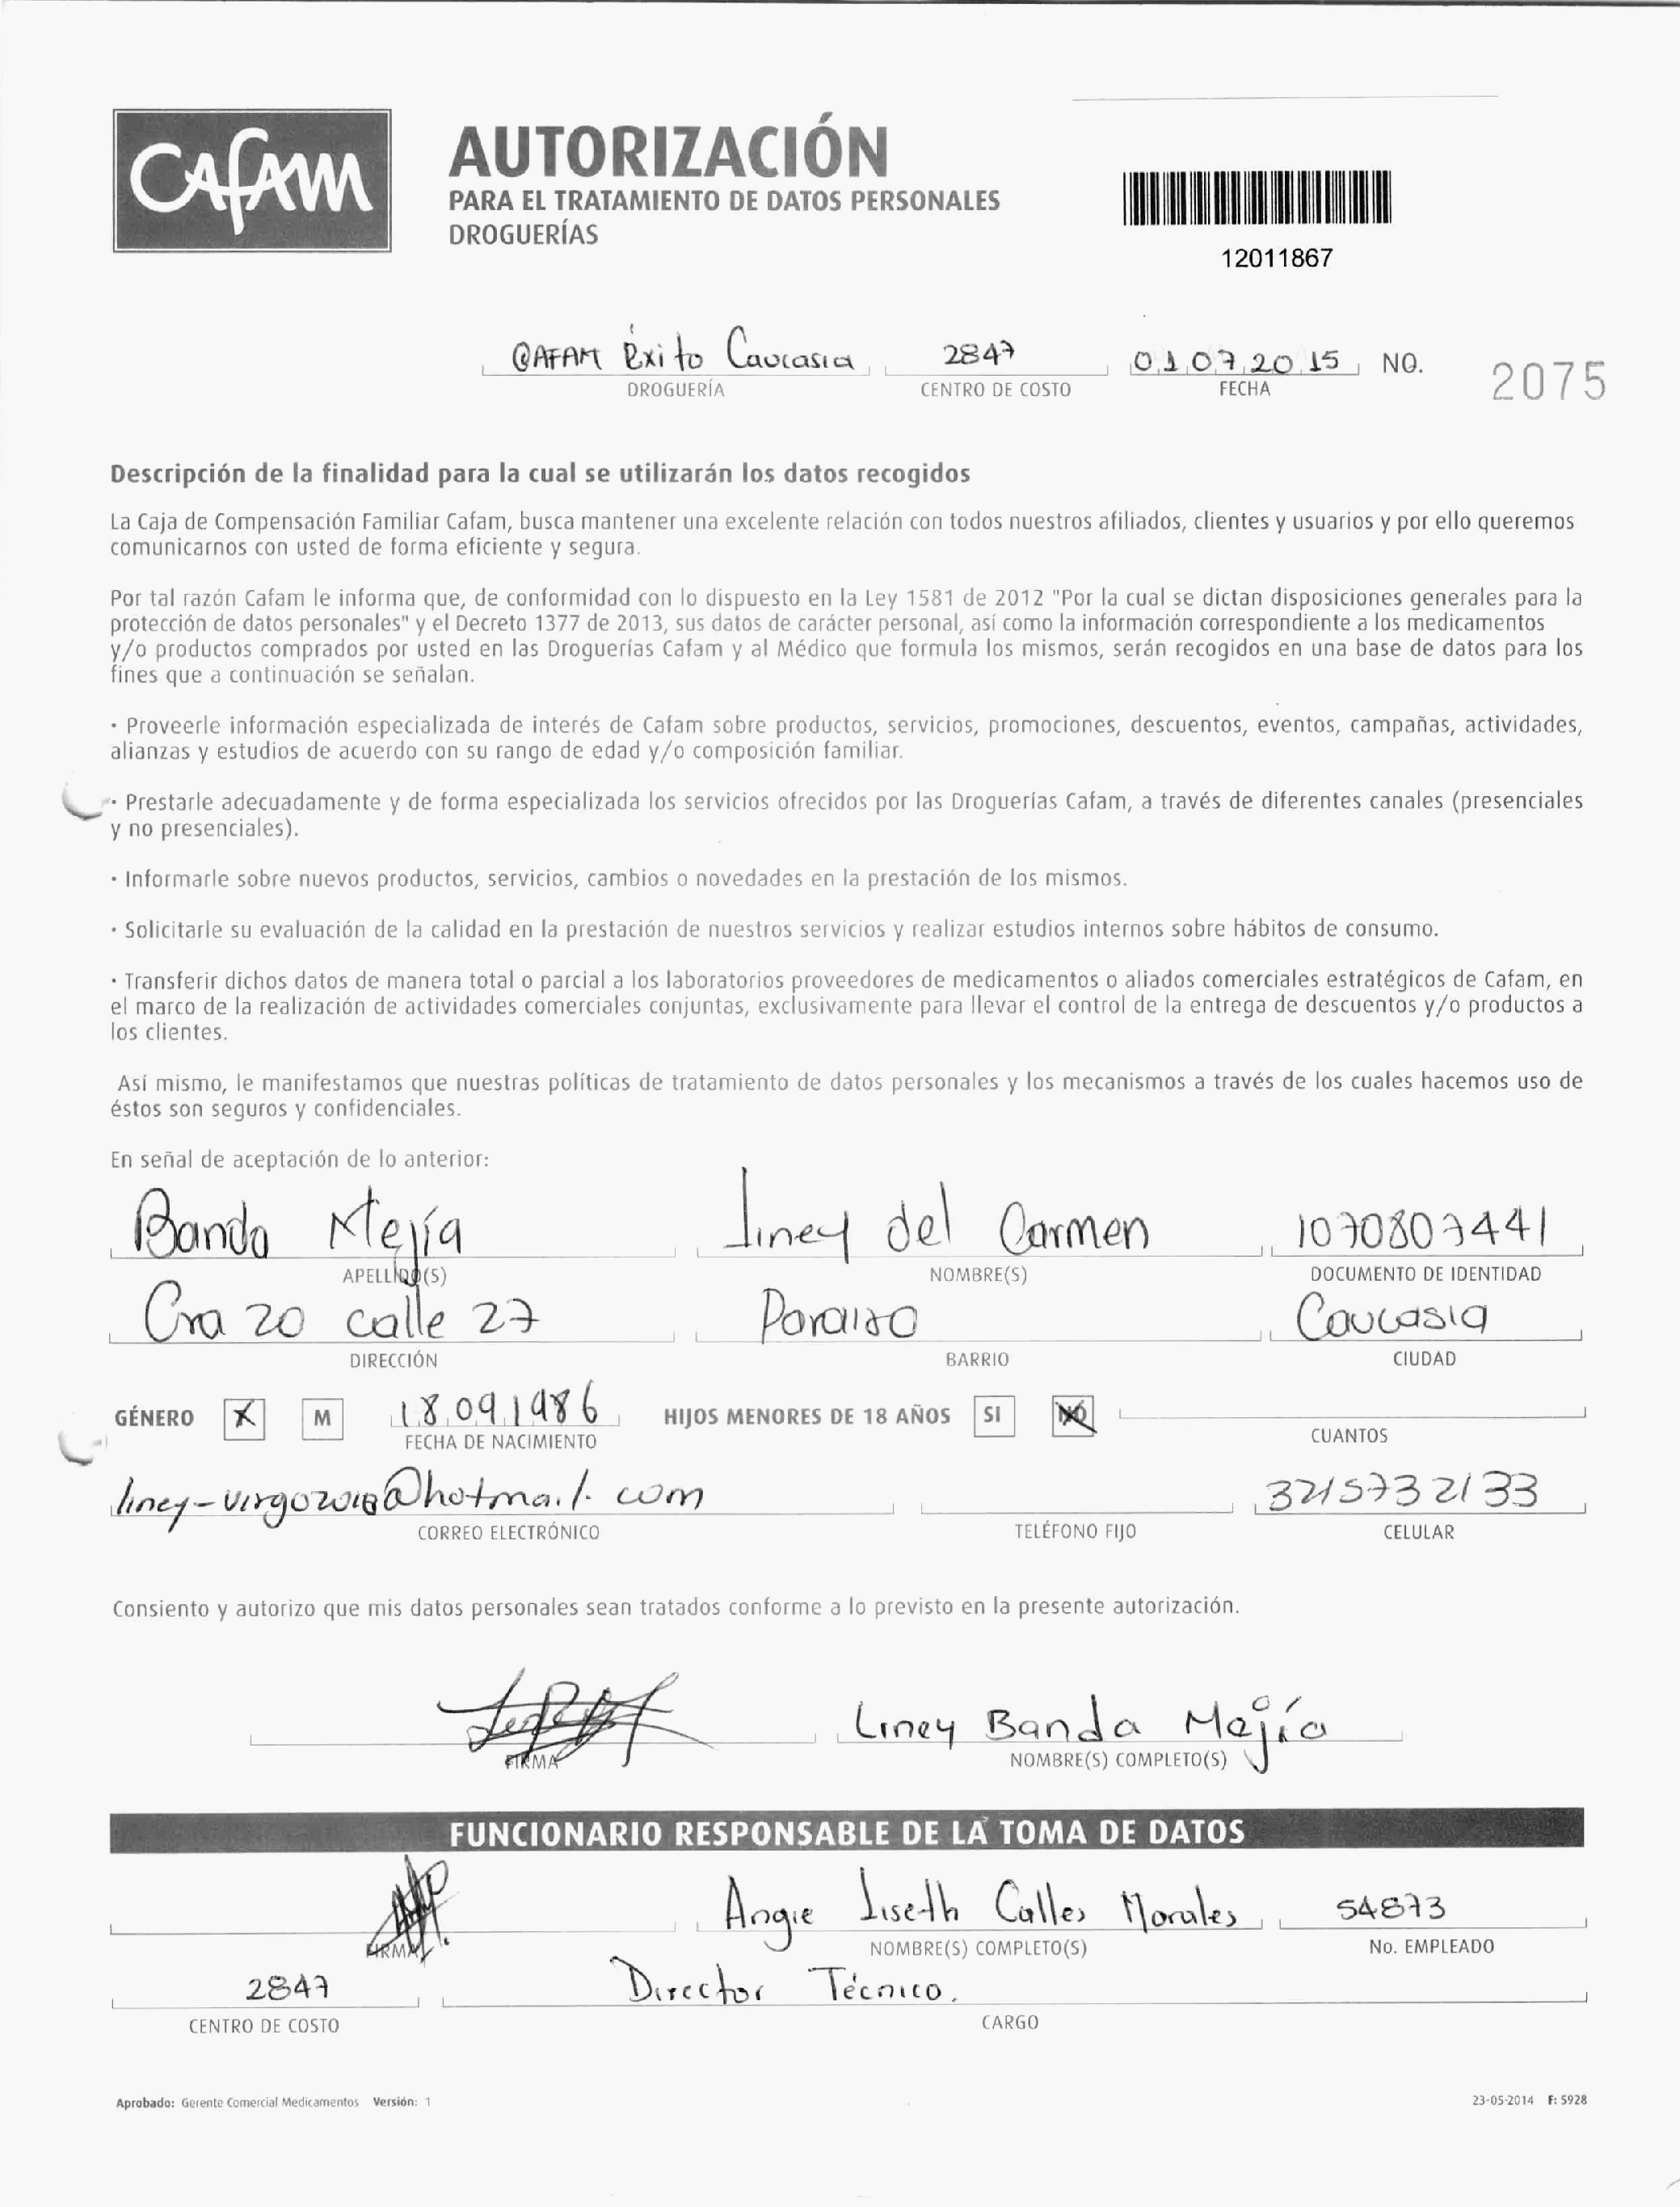 CAFAM
AUTORIZACIÓN
PARA EL TRATAMIENTO DE DATOS PERSONALES
DROGUERÍAS
12011867
CAFAM Éxito Caucasia 2847 01 07 2015 NO. 2075
DROGUERÍA CENTRO DE COSTO FECHA
Descripción de la finalidad para la cual se utilizarán los datos recogidos
La Caja de Compensación Familiar Cafam, busca mantener una excelente relación con todos nuestros afiliados, clientes y usuarios y por ello queremos
comunicarnos con usted de forma eficiente y segura.
Por tal razón Cafam le informa que, de conformidad con lo dispuesto en la Ley 1581 de 2012 "Por la cual se dictan disposiciones generales para la
protección de datos personales" y el Decreto 1377 de 2013, sus datos de carácter personal, así como la información correspondiente a los medicamentos
y/o productos comprados por usted en las Droguerías Cafam y al Médico que formula los mismos, serán recogidos en una base de datos para los
fines que a continuación se señalan.
· Proveerle información especializada de interés de Cafam sobre productos, servicios, promociones, descuentos, eventos, campañas, actividades,
alianzas y estudios de acuerdo con su rango de edad y/o composición familiar.
· Prestarle adecuadamente y de forma especializada los servicios ofrecidos por las Droguerías Cafam, a través de diferentes canales (presenciales
y no presenciales).
· Informarle sobre nuevos productos, servicios, cambios o novedades en la prestación de los mismos.
· Solicitarle su evaluación de la calidad en la prestación de nuestros servicios y realizar estudios internos sobre hábitos de consumo.
· Transferir dichos datos de manera total o parcial a los laboratorios proveedores de medicamentos o aliados comerciales estratégicos de Cafam, en
el marco de la realización de actividades comerciales conjuntas, exclusivamente para llevar el control de la entrega de descuentos y/o productos a
los clientes.
Así mismo, le manifestamos que nuestras políticas de tratamiento de datos personales y los mecanismos a través de los cuales hacemos uso de
éstos son seguros y confidenciales.
En señal de aceptación de lo anterior:
Banda Mejía Liney del Carmen 1070807441
APELLIDO(S) NOMBRE(S) DOCUMENTO DE IDENTIDAD
Cra 20 calle 27 Paraiso Caucasia
DIRECCIÓN BARRIO CIUDAD
GÉNERO X M 18 09 1986 HIJOS MENORES DE 18 AÑOS SI NO
FECHA DE NACIMIENTO CUANTOS
@hotmail.com 3215732133
CORREO ELECTRÓNICO TELÉFONO FIJO CELULAR
Consiento y autorizo que mis datos personales sean tratados conforme a lo previsto en la presente autorización.
Liney Banda Mejía
FIRMA NOMBRE(S) COMPLETO(S)
FUNCIONARIO RESPONSABLE DE LA TOMA DE DATOS
Angie Liseth Calles Morales 54873
FIRMA NOMBRE(S) COMPLETO(S) No. EMPLEADO
2847 Director Técnico.
CENTRO DE COSTO CARGO
Aprobado: Gerente Comercial Medicamentos Versión: 1 23-05-2014 F: 5928